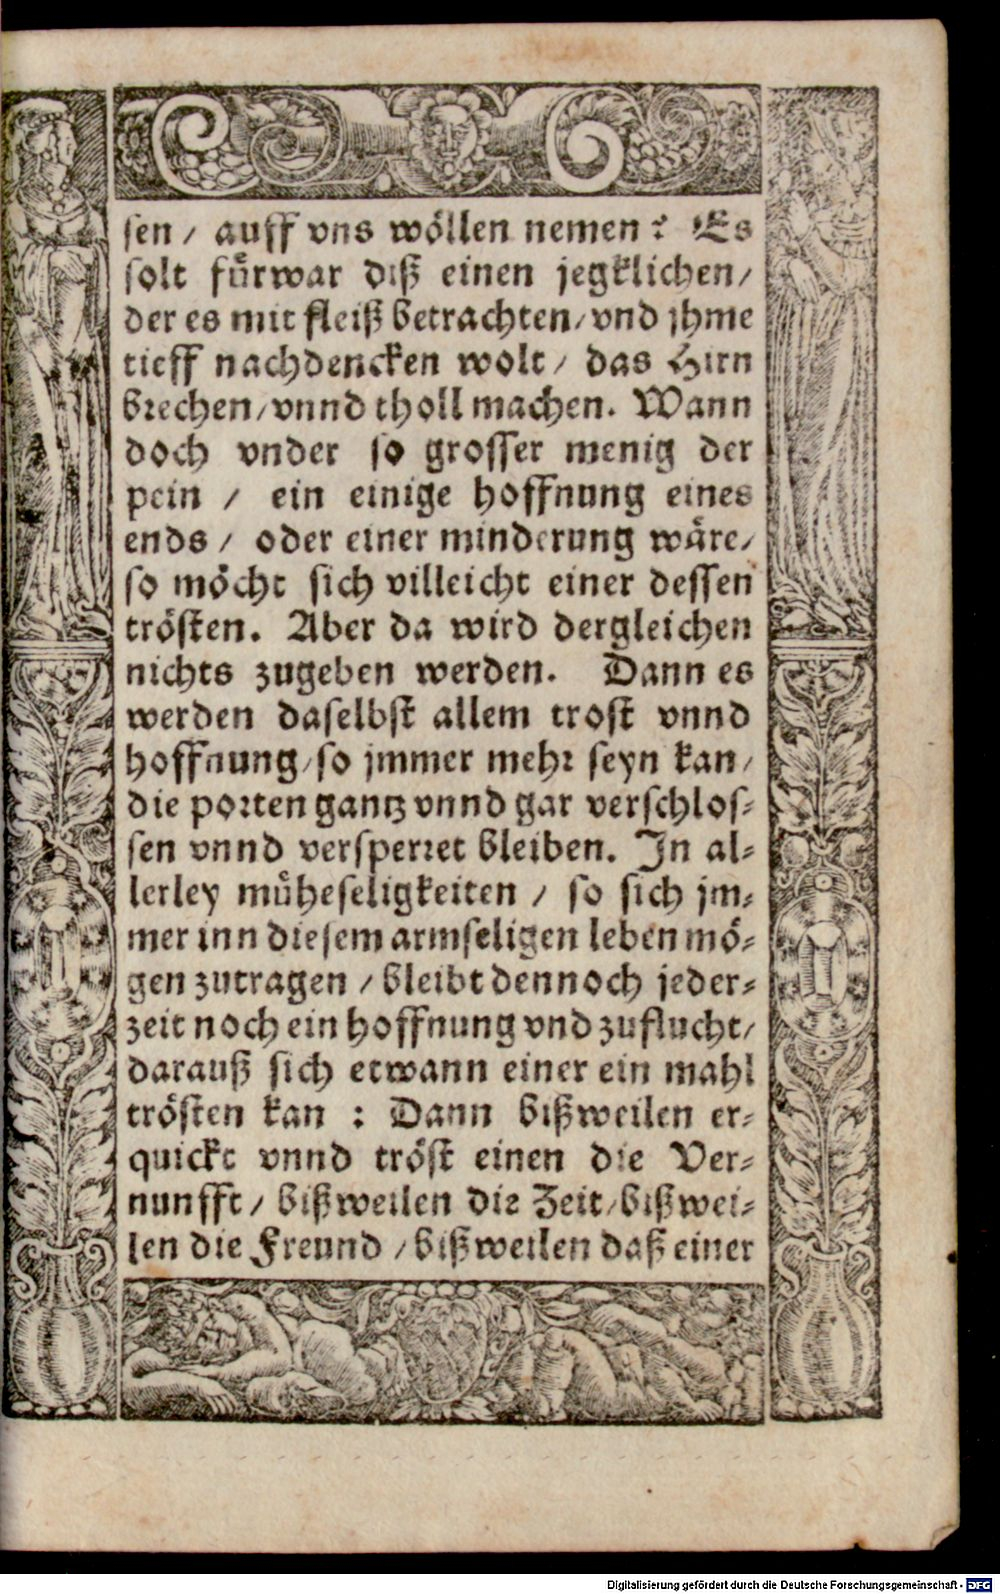 sen / auff vns wöllen nemen? Es
solt fürwar diß einen jegklichen/
der es mit fleiß betrachten/vnd jhme
tieff nachdencken wolt / das Hirn
brechen/vnnd tholl machen. Wann
doch vnder so grosser menig der
pein / ein einige hoffnung eines
ends / oder einer minderung wäre/
so möcht sich villeicht einer dessen
trösten. Aber da wird dergleichen
nichts zugeben werden. Dann es
werden daselbst allem trost vnnd
hoffnung/so jmmer mehr seyn kan/
die porten gantz vnnd gar verschlos-
sen vnnd versperret bleiben. In al-
lerley müheseligkeiten / so sich jm-
mer inn diesem armseligen leben mö-
gen zutragen / bleibt dennoch jeder-
zeit noch ein hoffnung vnd zuflucht/
darauß sich etwann einer ein mahl
trösten kan : Dann bißweilen er-
quickt vnnd tröst einen die Ver-
nunfft / bißweilen die Zeit/bißwei-
len die Freund / bißweilen daß einer
Digitalisierung gefördert durch die Deutsche Forschungsgemeinschaft - DFG